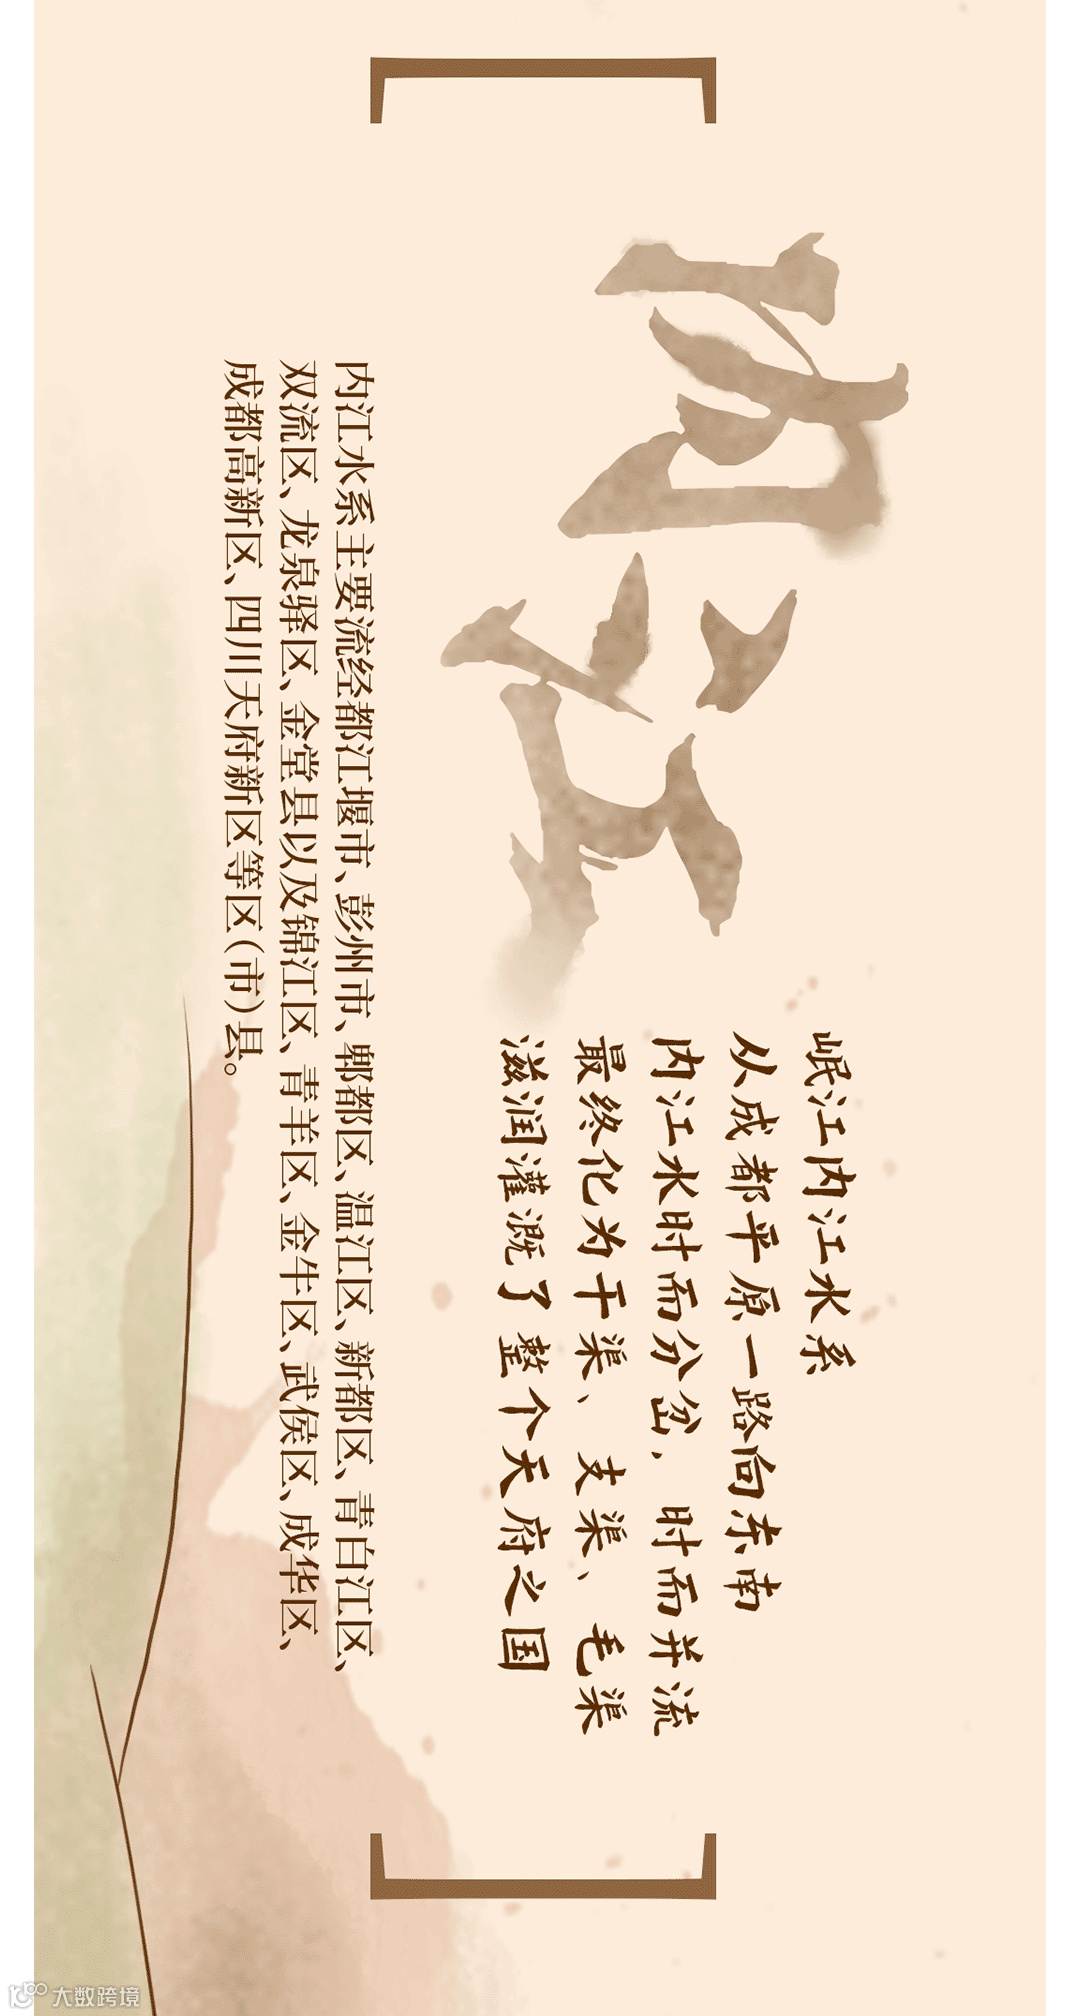 内江
岷江内江水系
从成都平原一路向东南
内江水时而分岔，时而并流
最终化为干渠、支渠、毛渠
滋润灌溉了整个天府之国
内江水系主要流经都江堰市、彭州市、郫都区、温江区、新都区、青白江区、
双流区、龙泉驿区、金堂县以及锦江区、青羊区、金牛区、武侯区、成华区、
成都高新区、四川天府新区等区（市）县。
大数跨境